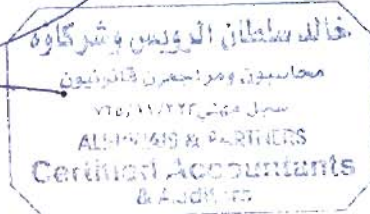 خالد سلطان الرويس وشركاوه
محاسبون ومراجعون قانونيون
سجل مهني
& PARTNERS
Certified Accountants
& Auditors